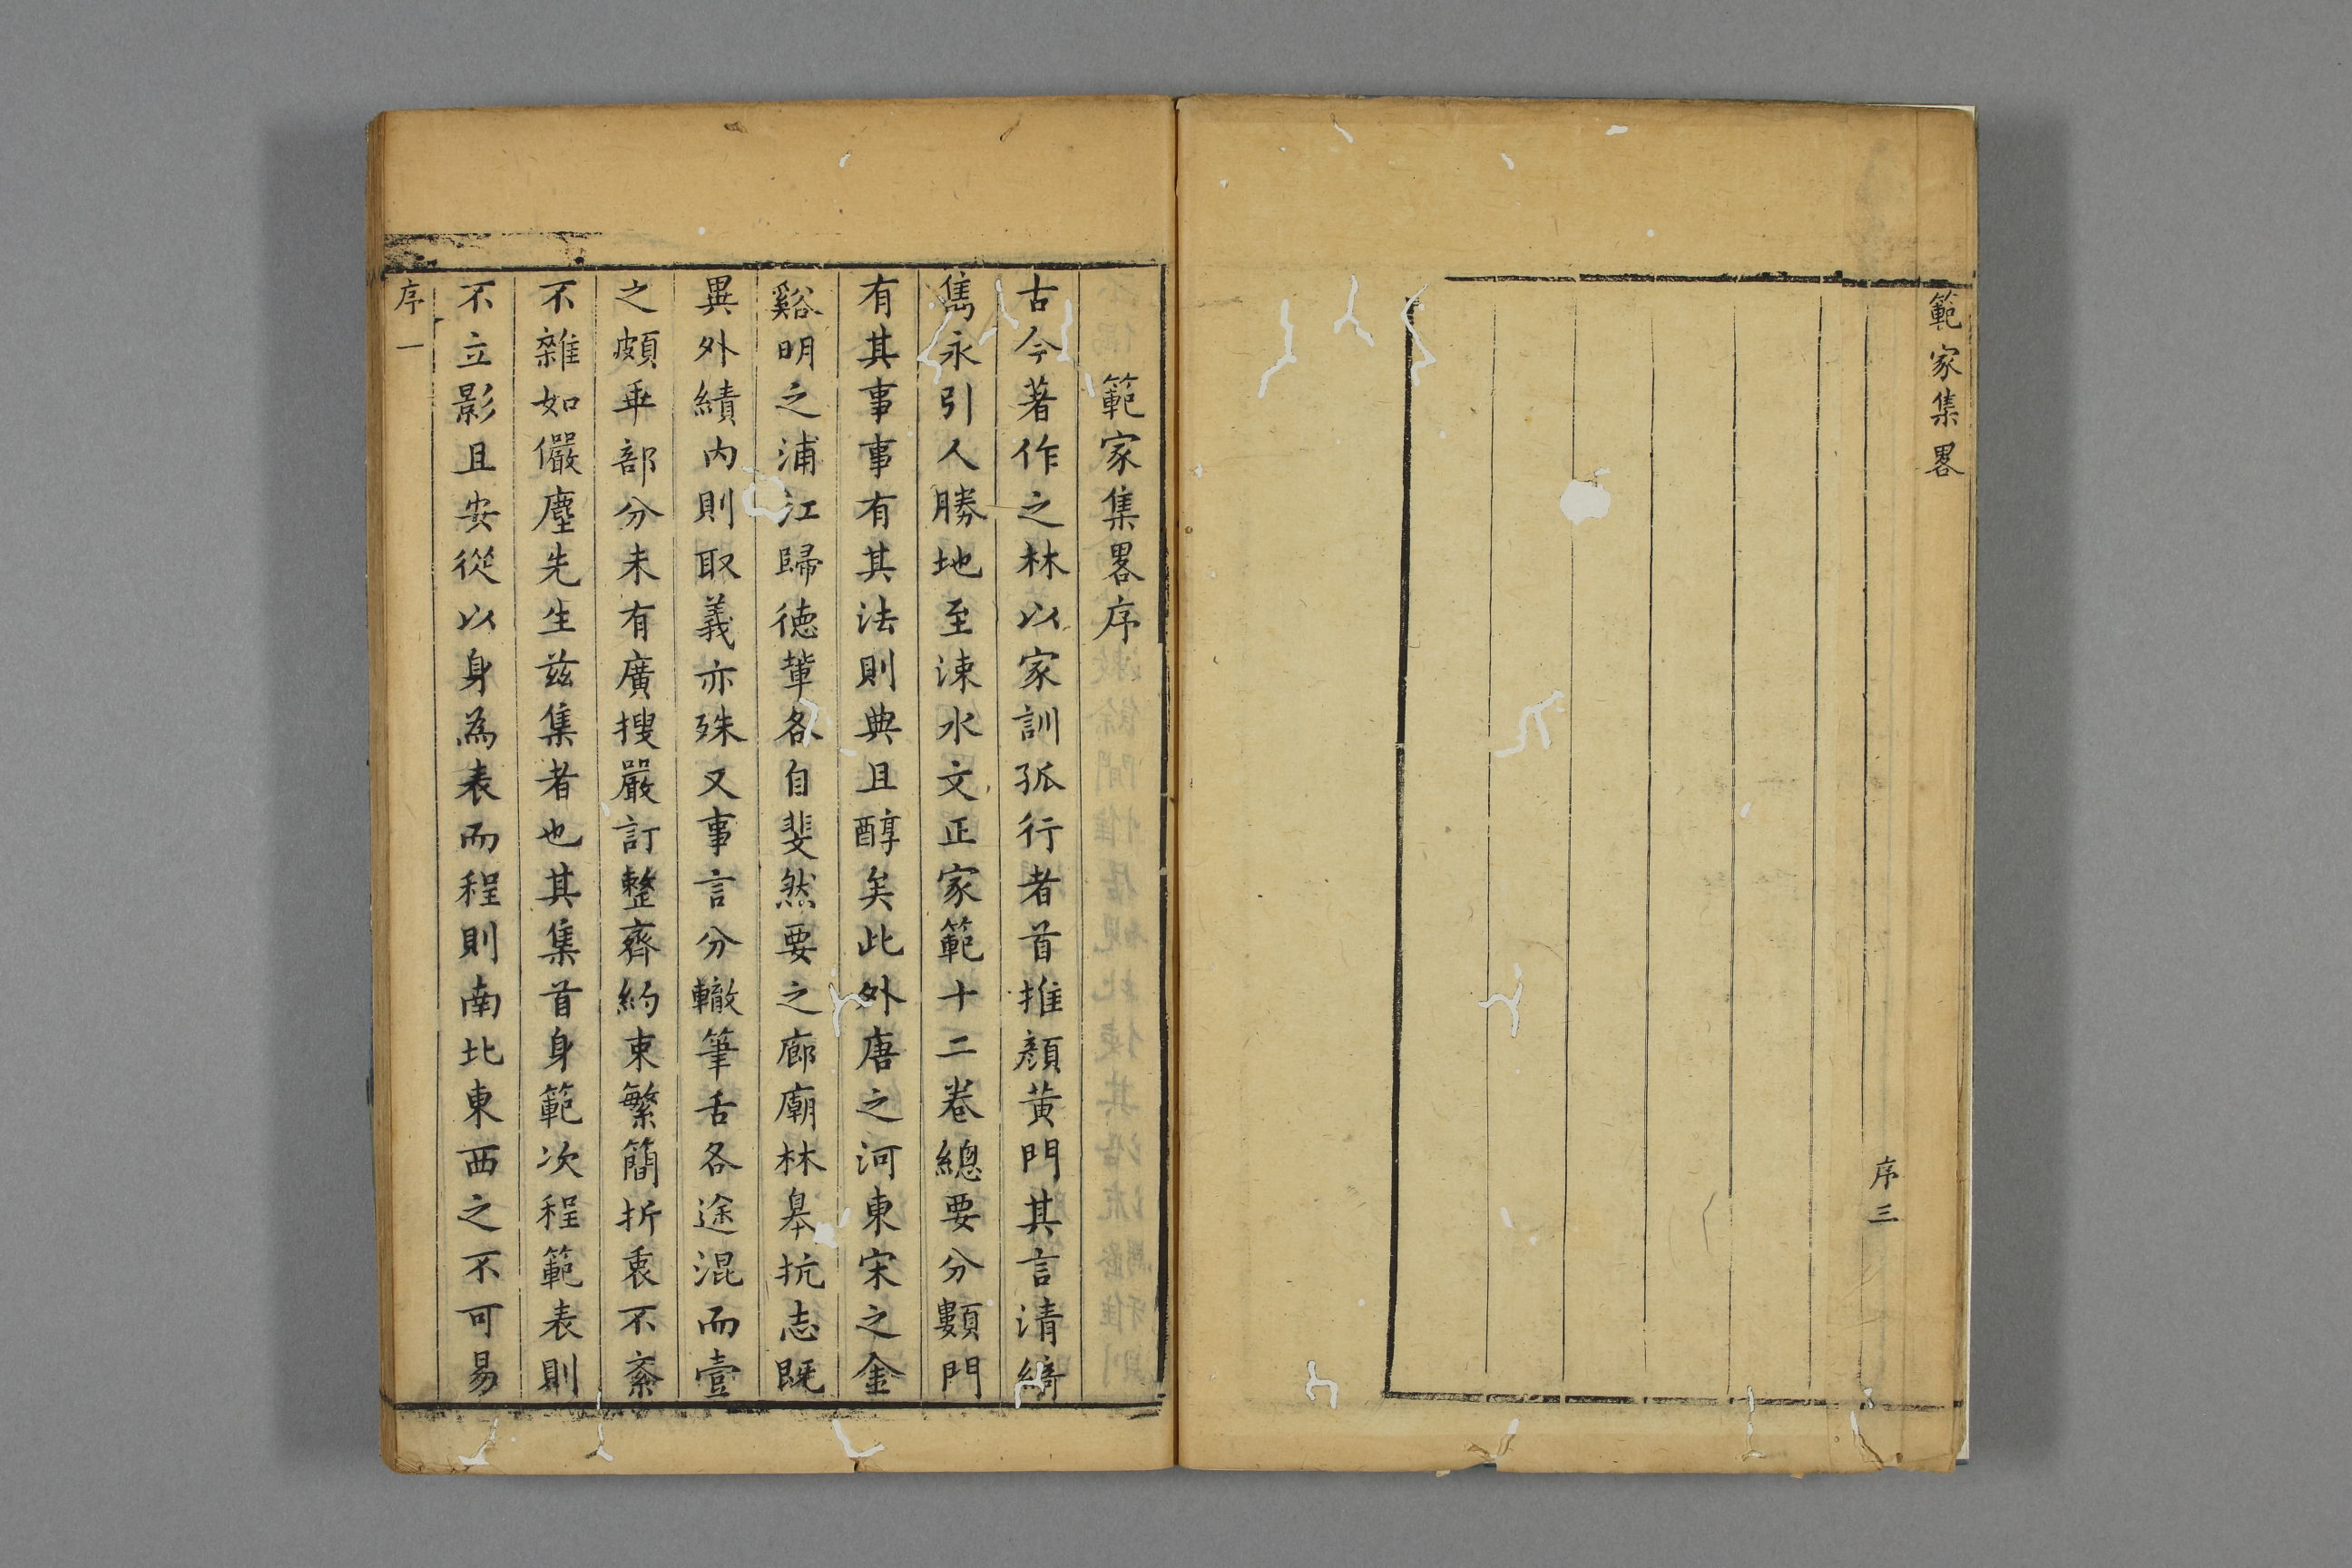 範家集畧
序三
範家集畧序
古今著作之林以家訓孤行者首推顏黃門其言清綺
雋永引人勝地至涑水文正家範十二卷總要分數門
有其事事有其法則典且醇矣此外唐之河東宋之金
谿明之浦江歸德輩各自斐然要之廊廟林皋抗志既
異外績内則取義亦殊又事言分轍筆舌各途混而壹
之頗乖部分未有廣搜嚴訂整齊約束繁簡折衷不紊
不雜如儼塵先生兹集者也其集首身範次程範表則
不立影且安從以身為表而程則南北東西之不可易
序一